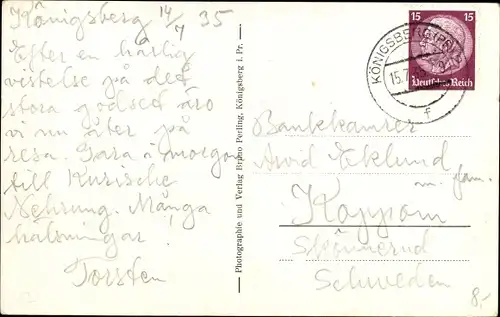 Königsberg 14/7 35
Efter en härlig
vistelse på det
stora godset äro
vi nu åter på
resa. Fara i morgon
till Kurische
Nehrung. Många
hälsningar
Torsten
Photographie und Verlag Bruno Perling, Königsberg i. Pr.
KÖNIGSBERG (PR)
15.7
f
15 15
Deutsches Reich
Arvid Eklund
m. fam.
Koppom
Skönnerud
Schweden
8,-